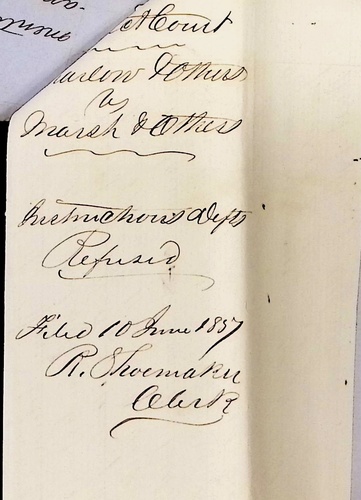 Court
Harlow & Others
vs
Marsh & Others
Instructions Defts
Refused
Filed 10 June 1857
R. Shoemaker
Clerk